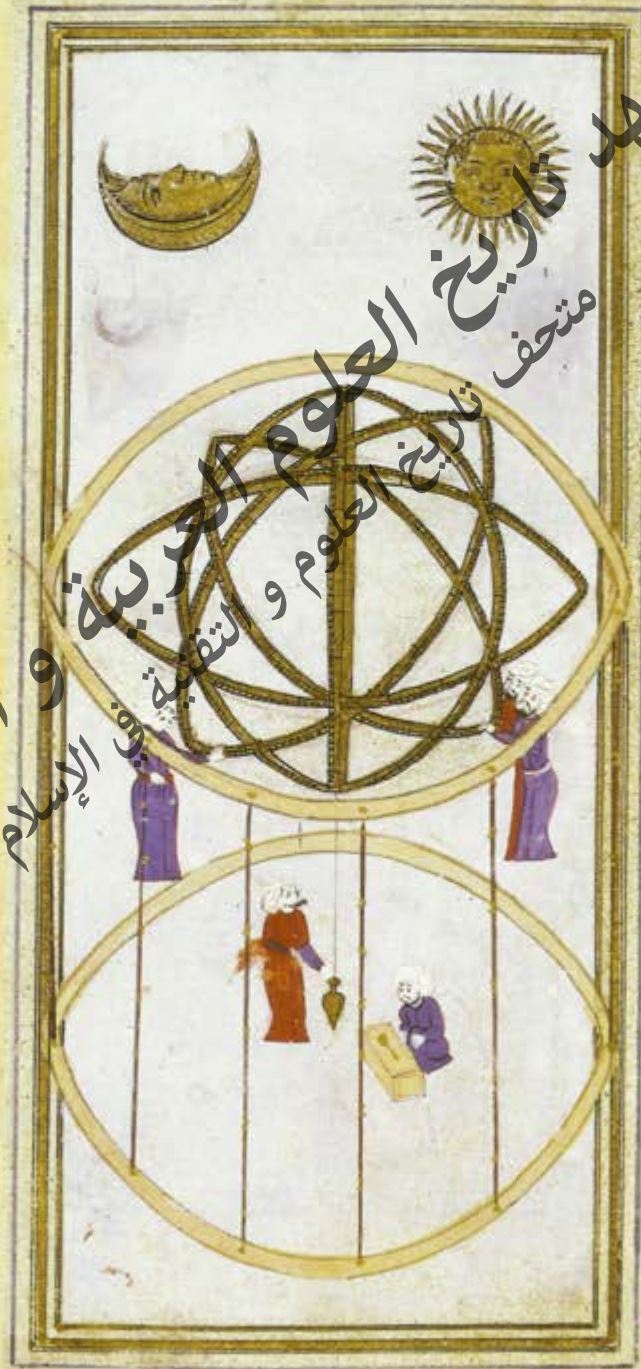 هد تاريخ العلوم العربية و
متحف تاريخ العلوم و التقنية في الإسلام